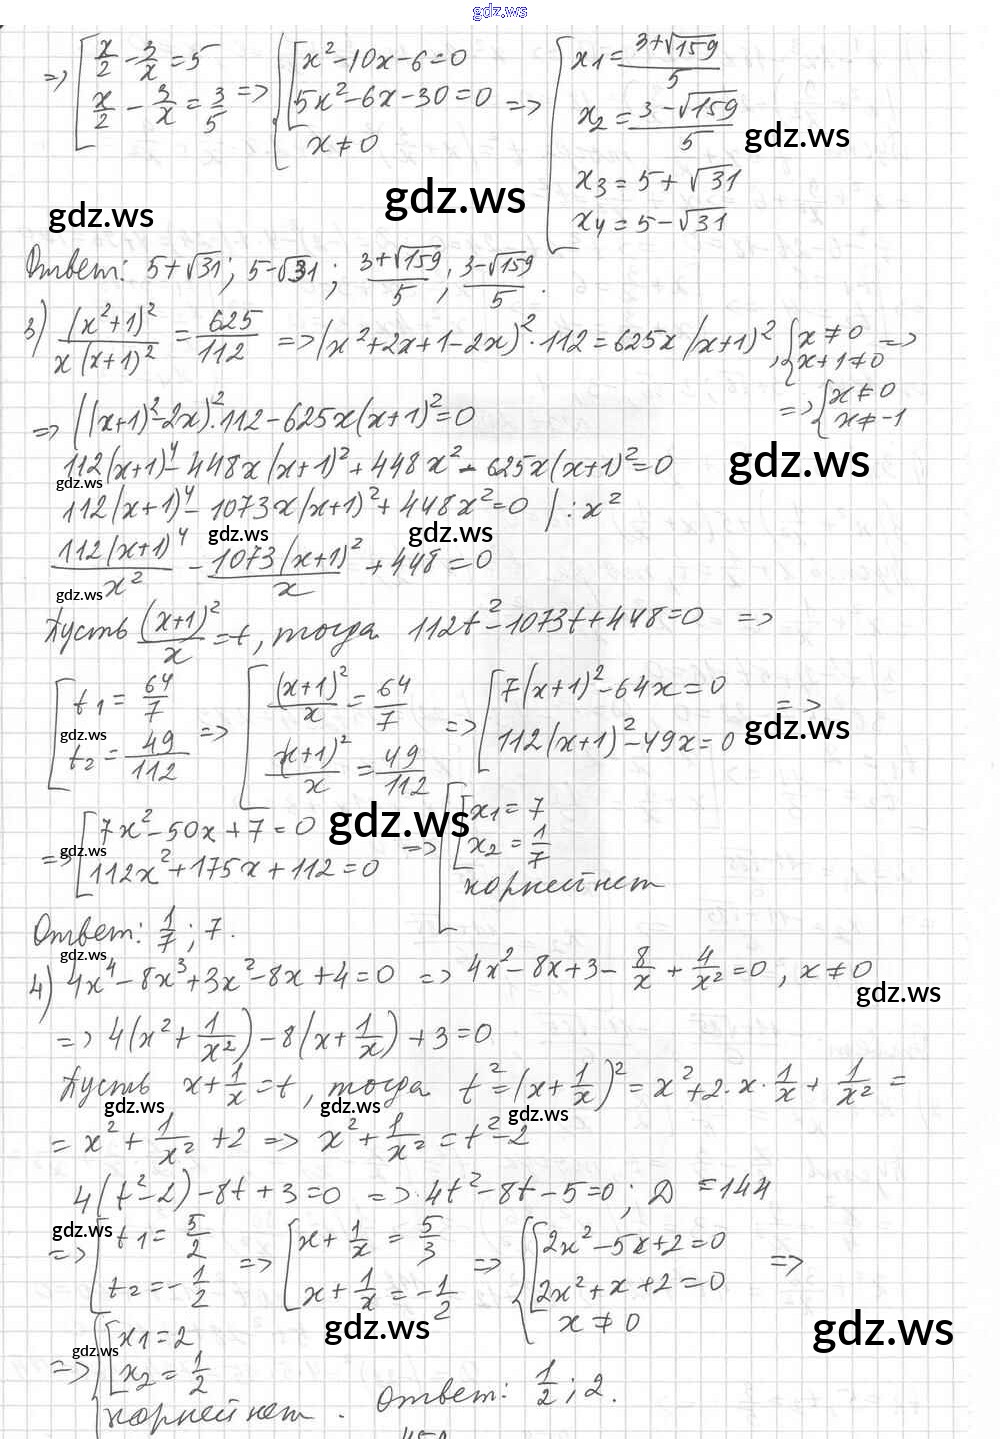 gdz.ws
=> [ x/2 - 3/x = 5 ; x/2 - 3/x = 3/5 => { [ x² - 10x - 6 = 0 ; 5x² - 6x - 30 = 0 ; x ≠ 0 => [ x1 = (3+√159)/5 ; x2 = (3-√159)/5 ; x3 = 5+√31 ; x4 = 5-√31
gdz.ws
gdz.ws
gdz.ws
Ответ: 5+√31; 5-√31; (3+√159)/5, (3-√159)/5.
3) (x²+1)²/(x(x+1)²) = 625/112 => (x²+2x+1-2x)²·112 = 625x(x+1)², { x ≠ 0 ; x+1 ≠ 0 =>
=> { x ≠ 0 ; x ≠ -1
=> ((x+1)²-2x)²·112 - 625x(x+1)² = 0
gdz.ws
112(x+1)⁴ - 448x(x+1)² + 448x² - 625x(x+1)² = 0
gdz.ws
112(x+1)⁴ - 1073x(x+1)² + 448x² = 0 | : x²
gdz.ws
gdz.ws
112(x+1)⁴/x² - 1073(x+1)²/x + 448 = 0
gdz.ws
Пусть (x+1)²/x = t, тогда 112t² - 1073t + 448 = 0 =>
[ t1 = 64/7 ; t2 = 49/112 => [ (x+1)²/x = 64/7 ; (x+1)²/x = 49/112 => [ 7(x+1)² - 64x = 0 ; 112(x+1)² - 49x = 0 =>
gdz.ws
gdz.ws
=> [ 7x² - 50x + 7 = 0 ; 112x² + 175x + 112 = 0 => [ [ x1 = 7 ; x2 = 1/7 ; корней нет
gdz.ws
gdz.ws
Ответ: 1/7; 7.
gdz.ws
4) 4x⁴ - 8x³ + 3x² - 8x + 4 = 0 => 4x² - 8x + 3 - 8/x + 4/x² = 0, x ≠ 0
gdz.ws
=> 4(x² + 1/x²) - 8(x + 1/x) + 3 = 0
Пусть x + 1/x = t, тогда t² = (x + 1/x)² = x² + 2·x·1/x + 1/x² =
gdz.ws
gdz.ws
gdz.ws
= x² + 1/x² + 2 => x² + 1/x² = t² - 2
4(t² - 2) - 8t + 3 = 0 => 4t² - 8t - 5 = 0; D = 144
gdz.ws
=> [ t1 = 5/2 ; t2 = -1/2 => [ x + 1/x = 5/3 ; x + 1/x = -1/2 => { [ 2x² - 5x + 2 = 0 ; 2x² + x + 2 = 0 ; x ≠ 0 =>
gdz.ws
gdz.ws
gdz.ws
=> { [ x1 = 2 ; x2 = 1/2 ; корней нет. Ответ: 1/2; 2.